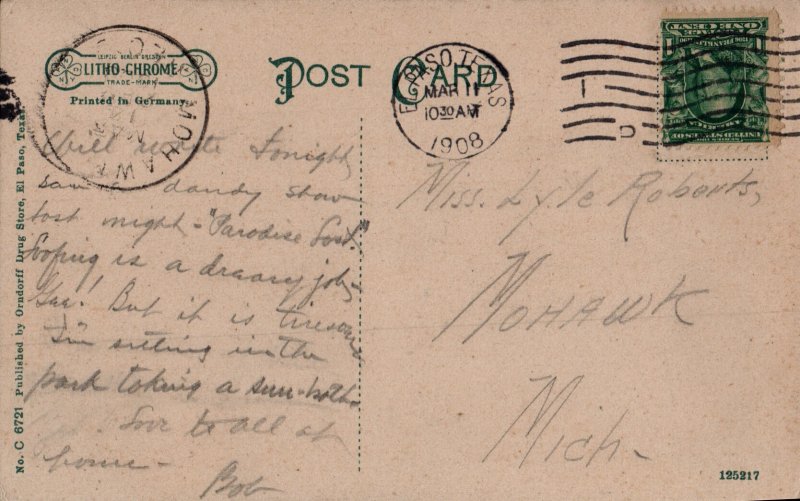 LEIPZIG BERLIN DRESDEN
LITHO-CHROME
TRADE-MARK
Printed in Germany
POST CARD
EL PASO, TEXAS
MAR 11
10 30 AM
1908
MOHAWK
Will write tonight,
saw a dandy show
last night - "Paradise Lost."
Loafing is a dreary job,
Gee! But it is tiresome
I'm sitting in the
park taking a sun-bath.
Love to all at
home -
Bob
Miss. Lyle Roberts,
Mohawk
Mich-
No. C 6721 Published by Orndorff Drug Store, El Paso, Texas
125217